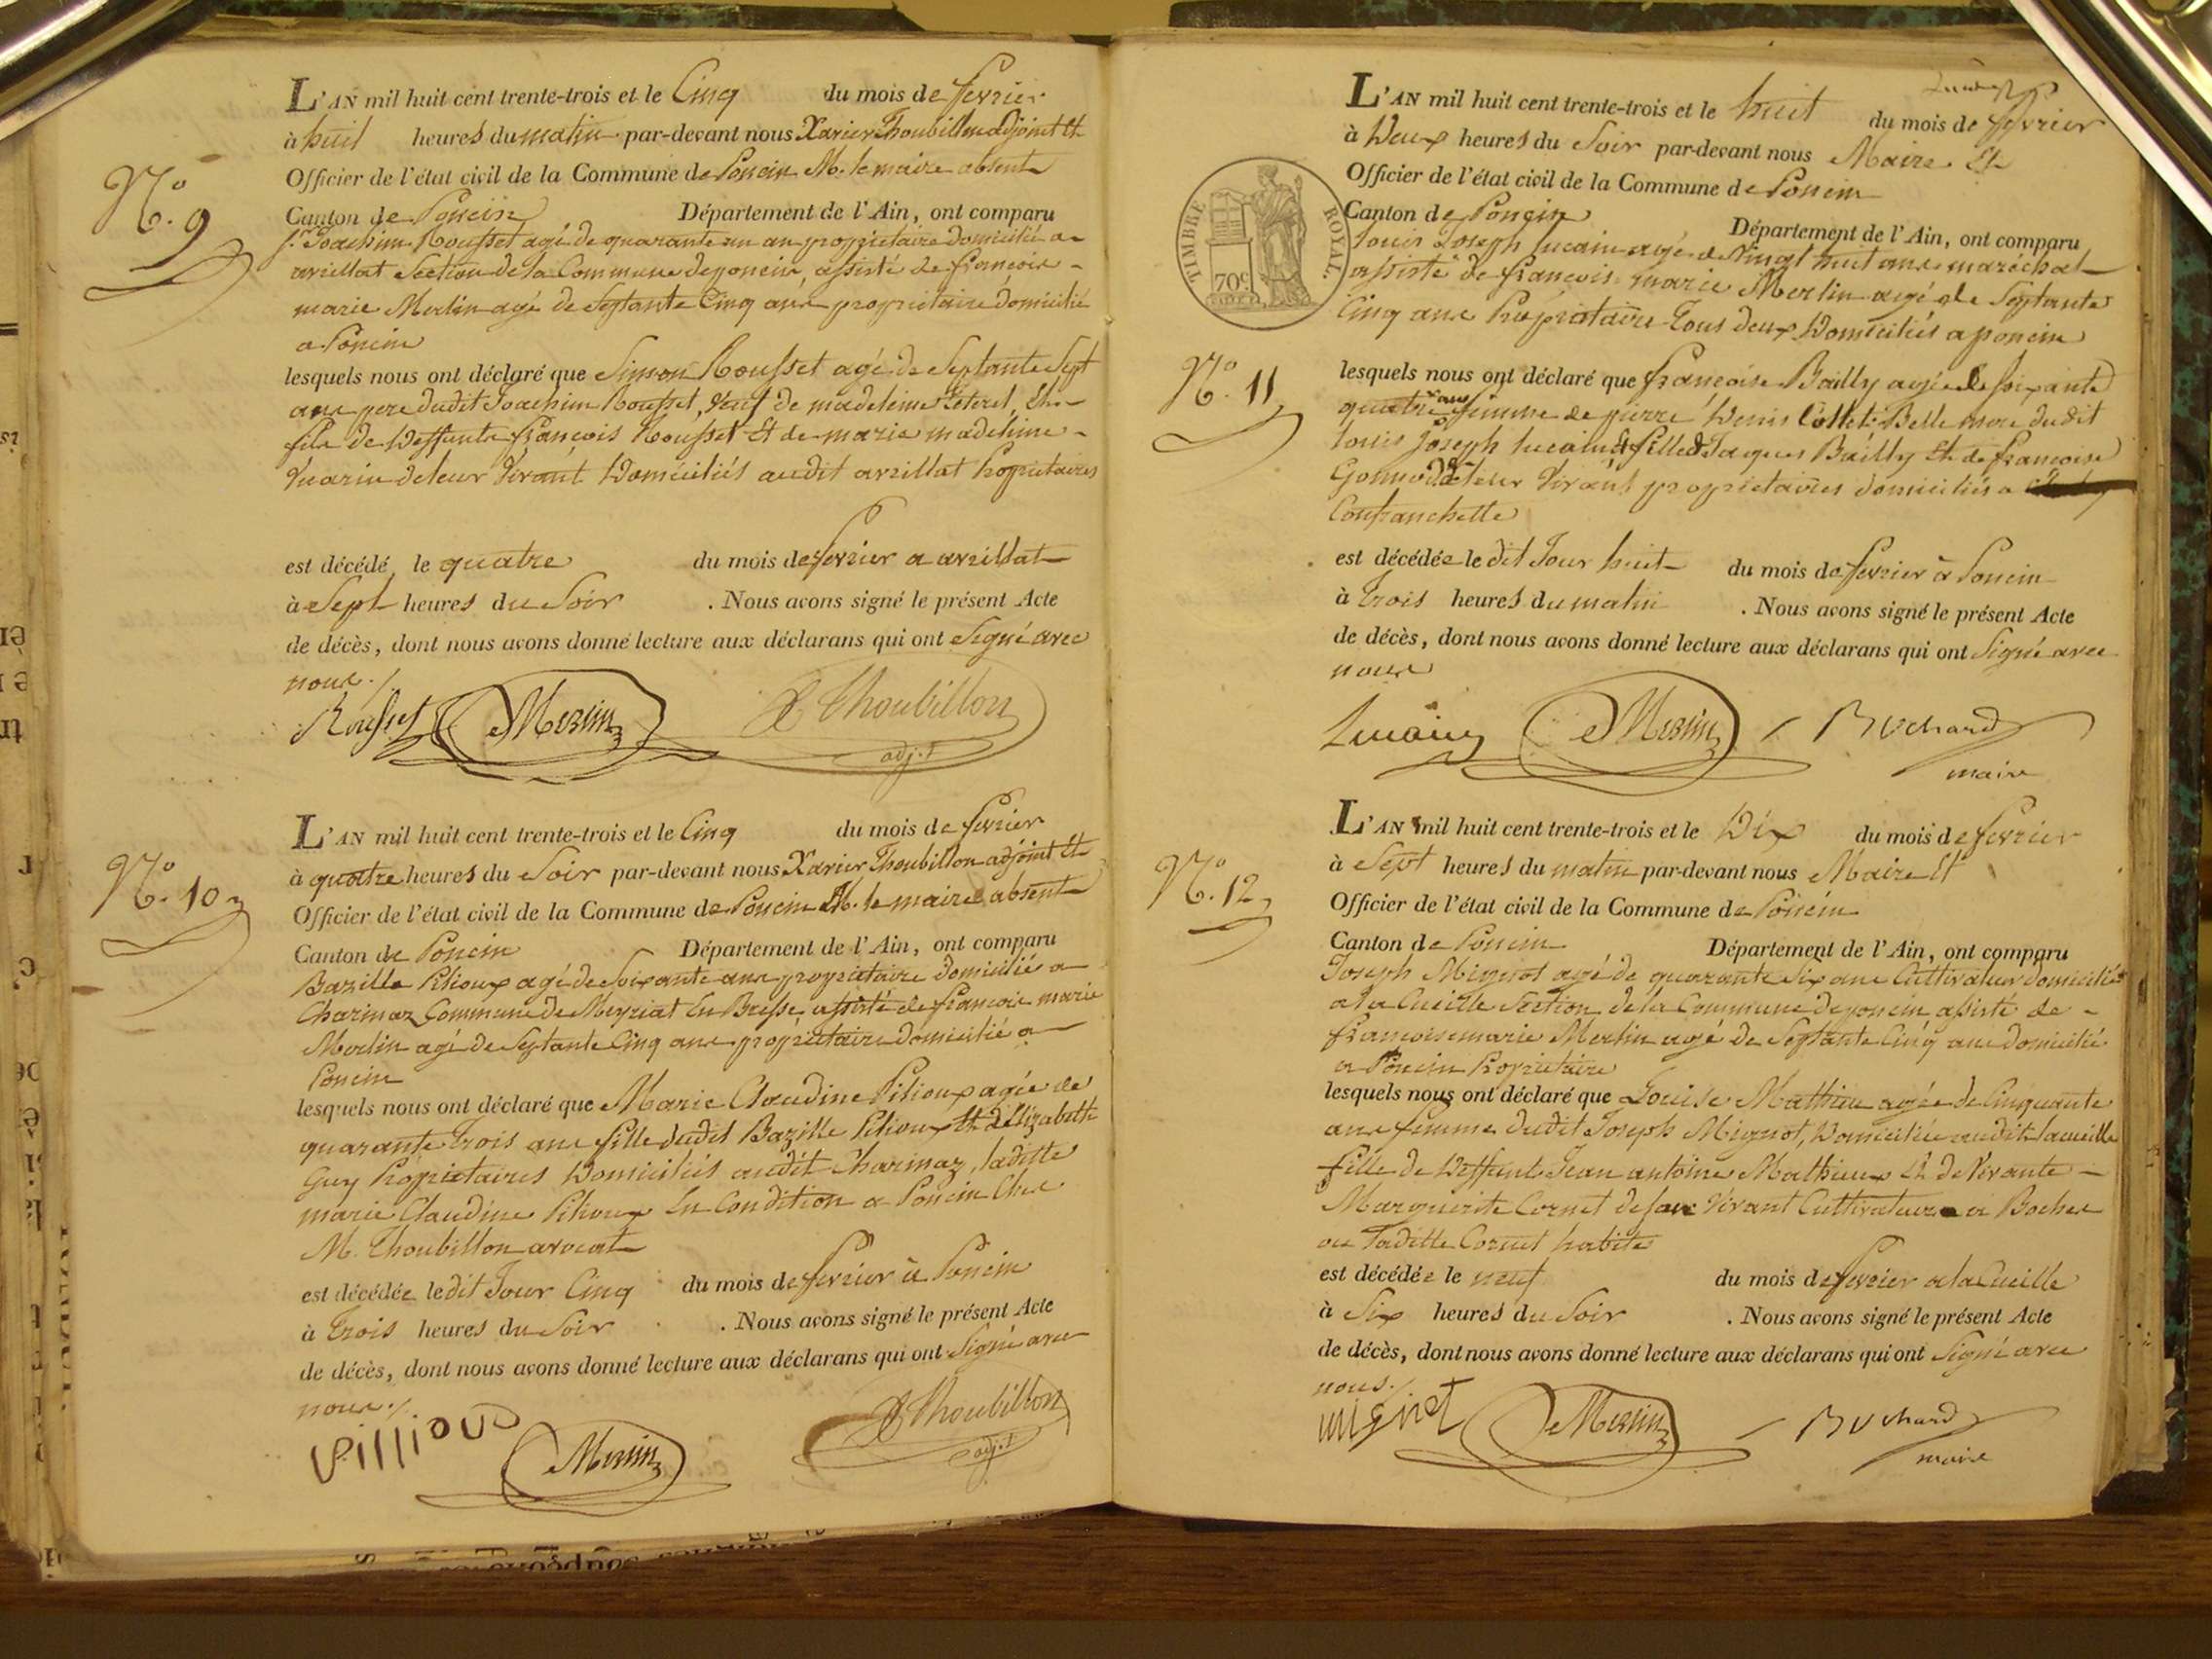 N.º 9
L'AN mil huit cent trente-trois et le Cinq du mois de fevrier
à huit heures du matin par-devant nous Xavier Thoubillon adjoint Et
Officier de l'état civil de la Commune de Poncin M. le maire absent
Canton de Poncin Département de l'Ain, ont comparu
s.r Joachim Rousset agé de quarante un an propriétaire domicilié a
avrillat Section de la Commune de poncin, assisté de françois
marie Merlin agé de Septante Cinq ans propriétaire domicilié
a Poncin
lesquels nous ont déclaré que Simon Rousset agé de Septante Sept
ans pere dudit Joachim Rousset, Veuf de madeleine Et
fils de Deffunts françois Rousset Et de marie madeleine
de leur Vivant Domiciliés audit avrillat Propriétaires
est décédé le quatre du mois de fevrier a avrillat
à Sept heures du Soir . Nous avons signé le présent Acte
de décès, dont nous avons donné lecture aux déclarans qui ont Signé avec
nous ./
Rousset Merlin X Thoubillon
adj.t
N.º 10
L'AN mil huit cent trente-trois et le Cinq du mois de fevrier
à quatre heures du Soir par-devant nous Xavier Thoubillon adjoint Et
Officier de l'état civil de la Commune de Poncin M. le maire absent
Canton de Poncin Département de l'Ain, ont comparu
Bazille Pilioux agé de Soixante ans propriétaire domicilié a
Charinaz Commune de Meyriat En Bresse, assisté de françois marie
Merlin agé de Septante Cinq ans propriétaire domicilié a
Poncin
lesquels nous ont déclaré que Marie Claudine Pilioux agée de
quarante trois ans fille dudit Bazille Pilioux Et d'Elizabeth
Guy Propriétaires Domiciliés audit Charinaz, ladite
marie Claudine Pilioux En Condition a Poncin Chez
M. Thoubillon avocat
est décédée ledit Jour Cinq du mois de fevrier à Poncin
à trois heures du Soir . Nous avons signé le présent Acte
de décès, dont nous avons donné lecture aux déclarans qui ont Signé avec
nous ./
Pillioud Merlin X Thoubillon
adj.t
L'AN mil huit cent trente-trois et le huit du mois de fevrier
à Deux heures du Soir par-devant nous Maire Et
Officier de l'état civil de la Commune de Poncin
TIMBRE ROYAL.
70c.
Canton de Poncin Département de l'Ain, ont comparu
Louis Joseph lucain agé de Vingt huit ans maréchal
assisté de françois marie Merlin agé de Septante
Cinq ans Propriétaire Tous deux Domiciliés a poncin
N.º 11
lesquels nous ont déclaré que françoise Bailly agée de soixante
quatre ans femme de pierre Denis Collet Belle mere dudit
Louis Joseph lucain Et fille de Jaques Bailly Et de françoise
de leur Vivant propriétaires domiciliés a
Confranchette
est décédée le dit Jour huit du mois de fevrier à Poncin
à trois heures du matin . Nous avons signé le présent Acte
de décès, dont nous avons donné lecture aux déclarans qui ont Signé avec
nous
Lucain Merlin Bochard
maire
N.º 12
L'AN mil huit cent trente-trois et le Dix du mois de fevrier
à Sept heures du matin par-devant nous Maire Et
Officier de l'état civil de la Commune de Poncin
Canton de Poncin Département de l'Ain, ont comparu
Joseph Mignot agé de quarante Six ans Cultivateur domicilié
a la Cueille Section de la Commune de poncin assisté de
françoismarie Merlin agé de Septante Cinq ans domicilié
a Poncin Propriétaire
lesquels nous ont déclaré que Louise Mathieu agée de Cinquante
ans femme dudit Joseph Mignot, Domiciliée audit lacueille
fille de Deffunt Jean antoine Mathieux Et de Vivante
Marguerite Cornet de Son Vivant Cultivateur a Boches
ou Ladite Cornet habite
est décédée le neuf du mois de fevrier a la Cueille
à Six heures du Soir . Nous avons signé le présent Acte
de décès, dont nous avons donné lecture aux déclarans qui ont Signé avec
nous ./
mignot Merlin Bochard
maire